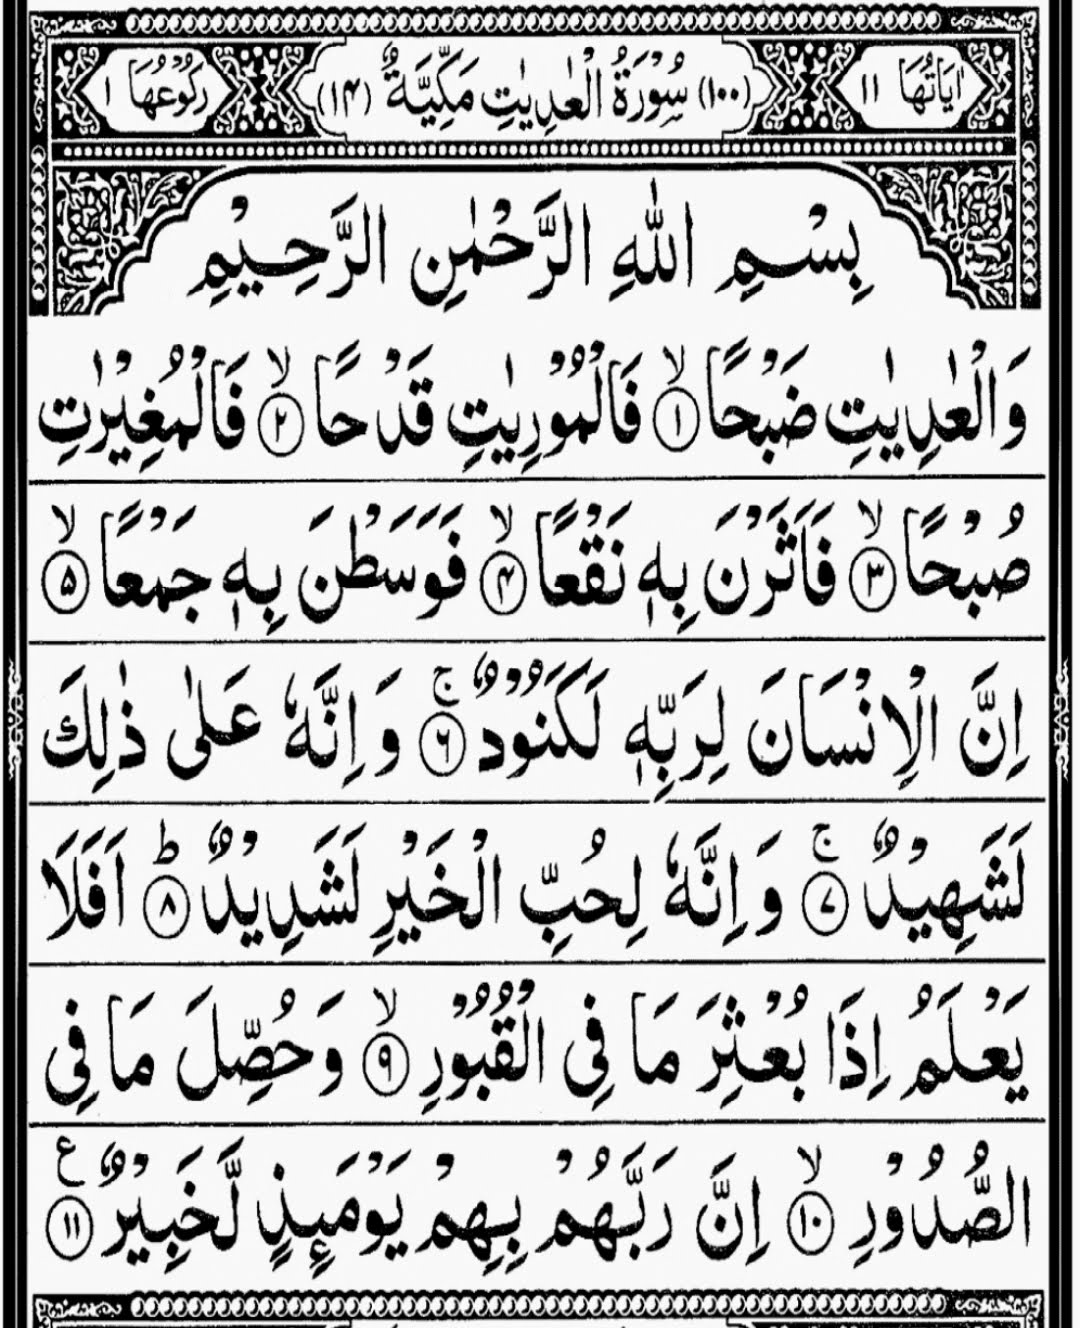 اٰيَاتُهَا ١١ (١٠٠) سُوۡرَةُ الۡعٰدِيٰتِ مَكِّيَّةٌ (١٤) رُكُوۡعُهَا ١
بِسۡمِ اللّٰهِ الرَّحۡمٰنِ الرَّحِيۡمِ
وَالۡعٰدِيٰتِ ضَبۡحًا ۙ‏﴿۱﴾ فَالۡمُوۡرِيٰتِ قَدۡحًا ۙ‏﴿۲﴾ فَالۡمُغِيۡرٰتِ
صُبۡحًا ۙ‏﴿۳﴾ فَاَثَرۡنَ بِهٖ نَقۡعًا ۙ‏﴿۴﴾ فَوَسَطۡنَ بِهٖ جَمۡعًا ۙ‏﴿۵﴾
اِنَّ الۡاِنۡسَانَ لِرَبِّهٖ لَكَنُوۡدٌ ۚ‏﴿۶﴾ وَاِنَّهٗ عَلٰى ذٰلِكَ
لَشَهِيۡدٌ ۚ‏﴿۷﴾ وَاِنَّهٗ لِحُبِّ الۡخَيۡرِ لَشَدِيۡدٌ ؕ‏﴿۸﴾ اَفَلَا
يَعۡلَمُ اِذَا بُعۡثِرَ مَا فِى الۡقُبُوۡرِ ۙ‏﴿۹﴾ وَحُصِّلَ مَا فِى
الصُّدُوۡرِ ۙ‏﴿۱۰﴾ اِنَّ رَبَّهُمۡ بِهِمۡ يَوۡمَٮِٕذٍ لَّخَبِيۡرٌ ع‏﴿۱۱﴾